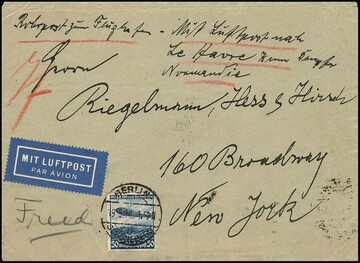 Rohrpost zum Flughafen - Mit Luftpost nach
Le Havre zum Dampfer
Normandie
Herrn
Riegelmann, Hess & Hirsch
MIT LUFTPOST
PAR AVION
160 Broadway
New York
Freed
BERLIN
50 50